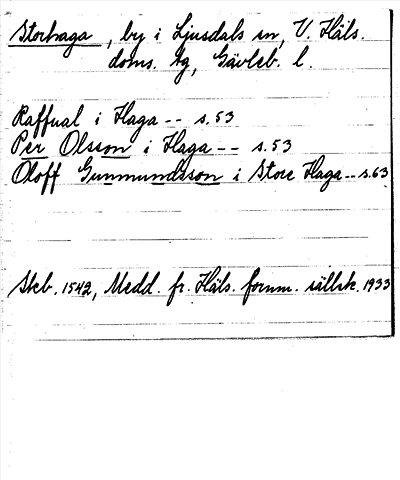 Storhaga, by i Ljusdals sn, V. Häls.
doms. tg, Gävleb. l.
Raffual i Haga -- s. 53
Per Olsson i Haga -- s. 53
Oloff Gunmundsson i Store Haga -- s. 63
Skb. 1542, Medd. fr. Häls. fornm. sällsk. 1933